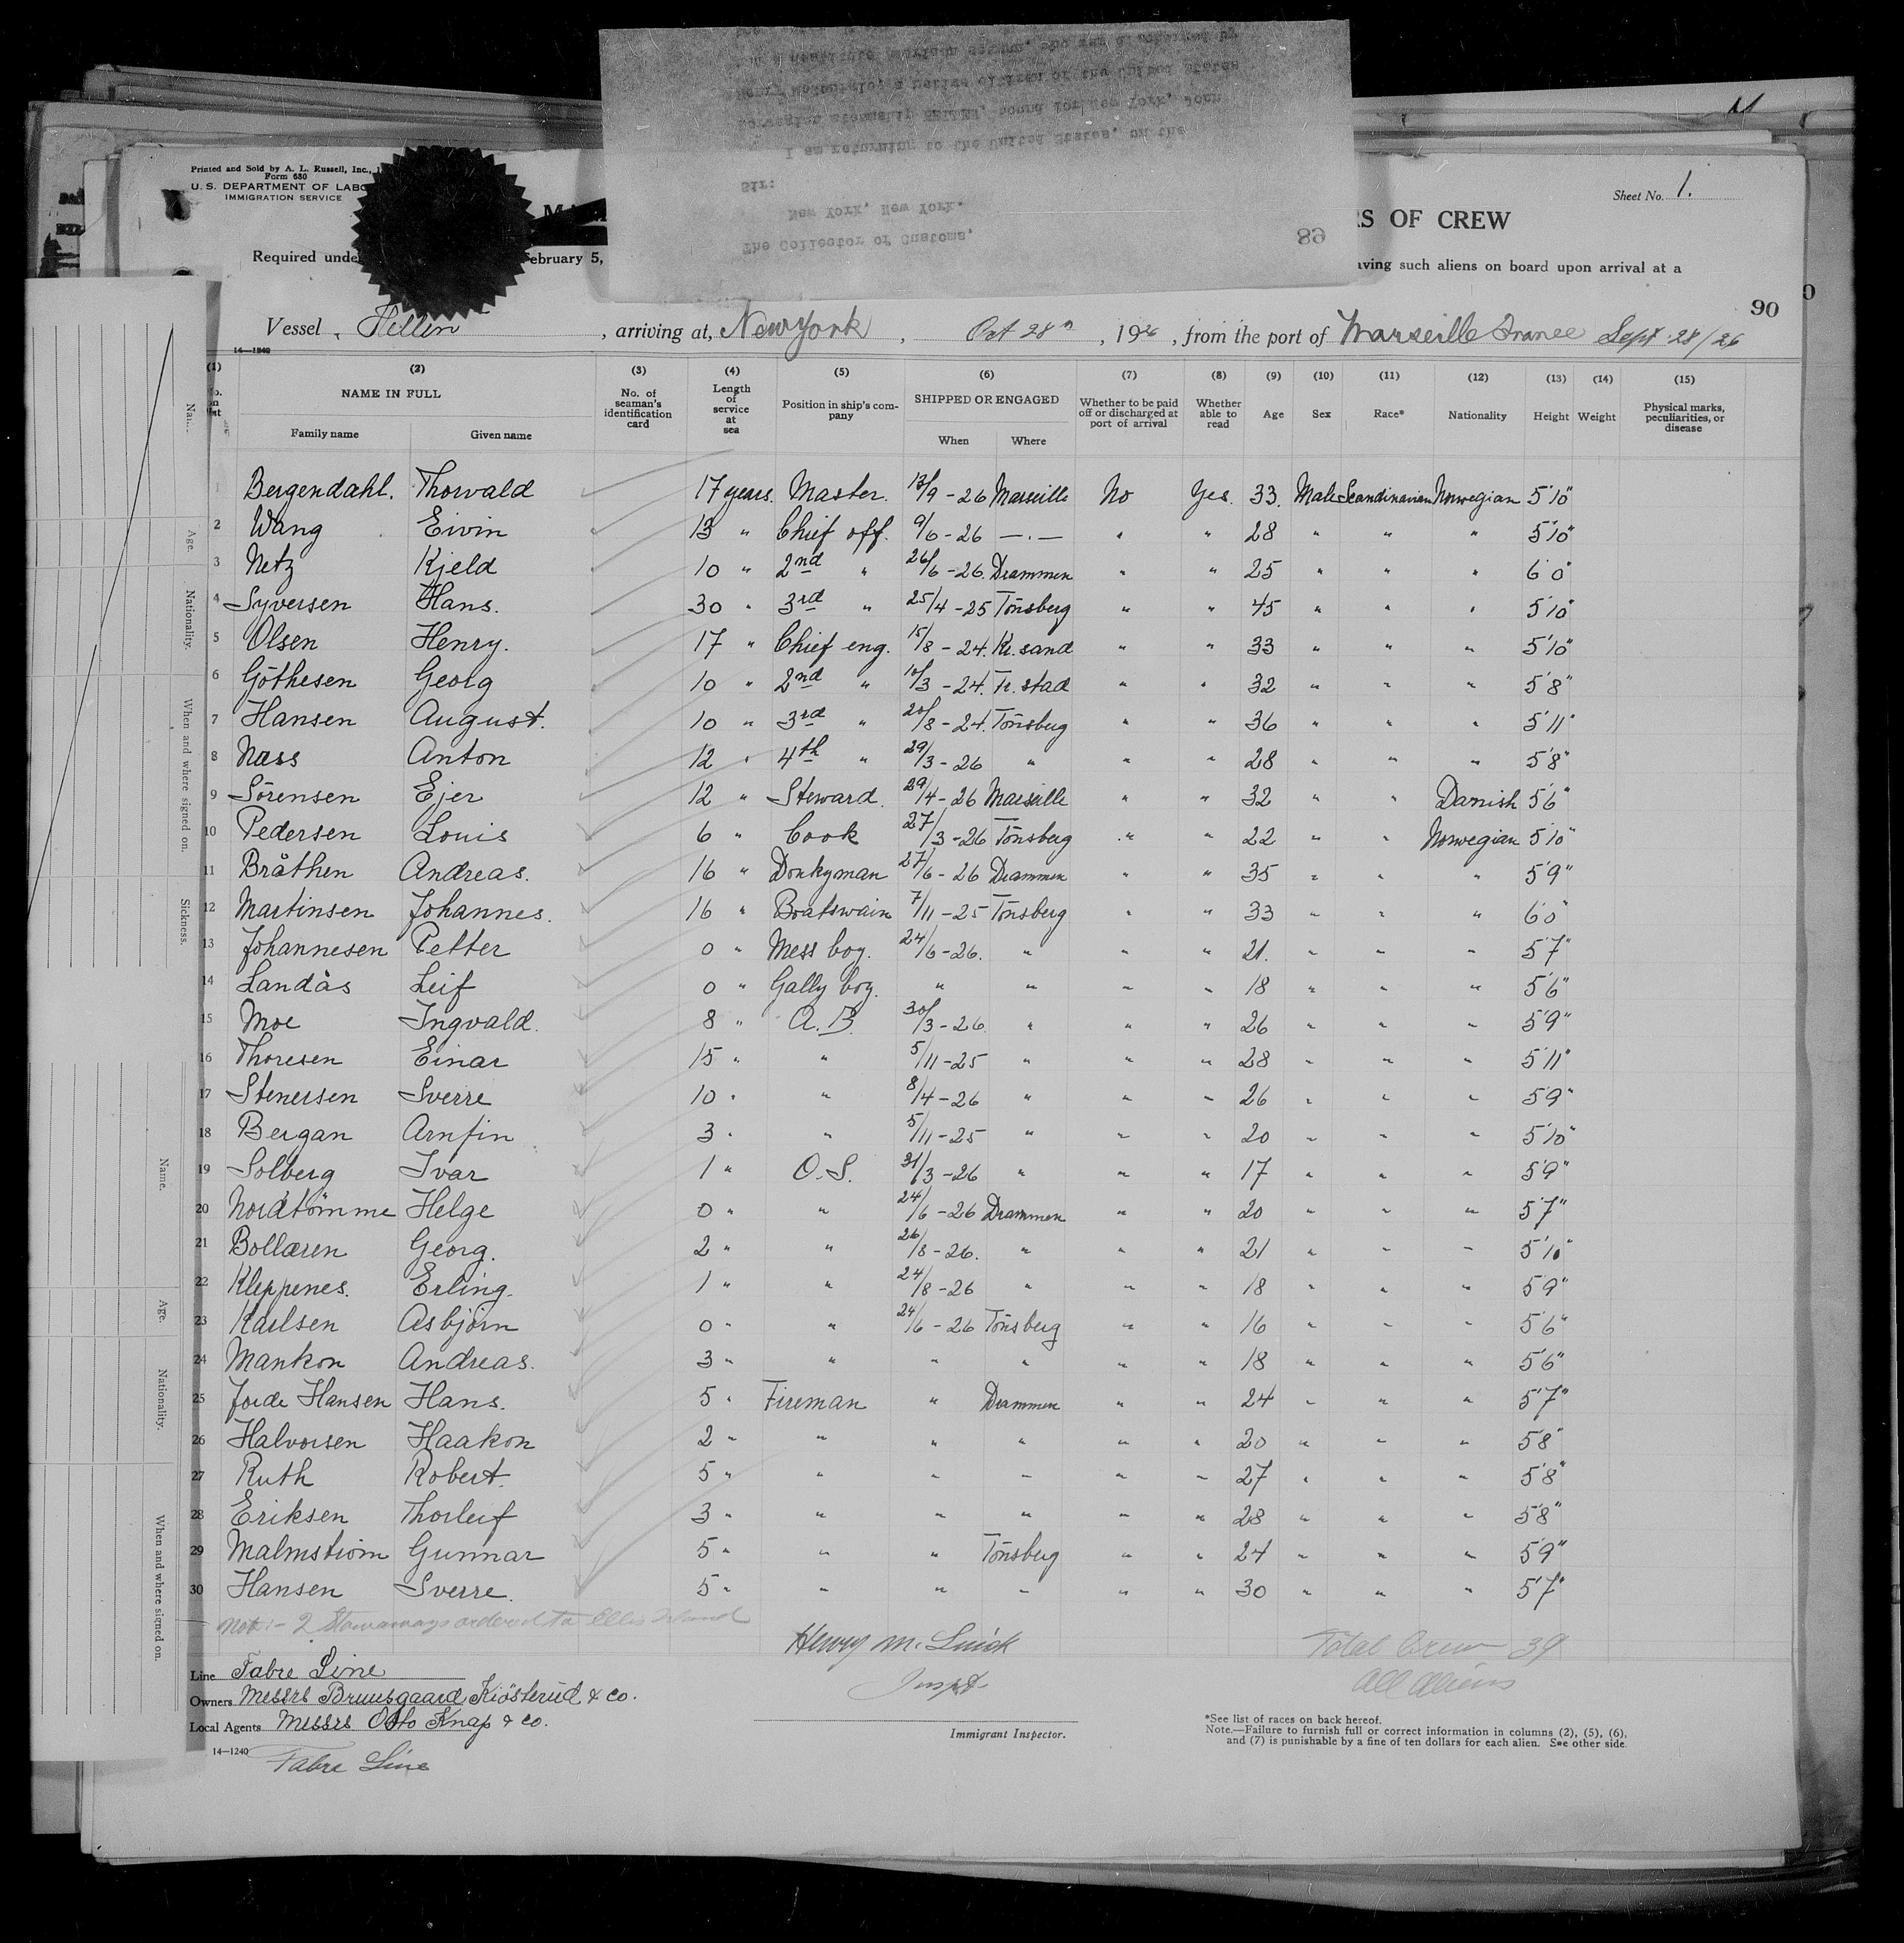 Printed and Sold by A. L. Russell, Inc.,
Form 680
U. S. DEPARTMENT OF LABO
IMMIGRATION SERVICE
The Collector of Customs,
New York, New York.
Sir:
I am returning to the United States, on the
Norwegian steamship HELLEN, bound for New York, John
a native citizen of the United States
89
Sheet No. 1.
RS OF CREW
Required unde ebruary 5, aving such aliens on board upon arrival at a
90
Vessel Hellen, arriving at, New York, Oct 28th, 1926, from the port of Marseille France Sept 28/26
14—1240
(1) (2) (3) (4) (5) (6) (7) (8) (9) (10) (11) (12) (13) (14) (15)
NAME IN FULL No. of seaman's identification card Length of service at sea Position in ship's company SHIPPED OR ENGAGED Whether to be paid off or discharged at port of arrival Whether able to read Age Sex Race* Nationality Height Weight Physical marks, peculiarities, or disease
Family name Given name When Where
Bergendahl. Thorvald 17 years. Master. 13/9 - 26 Marseille No Yes. 33. Male Scandinavian Norwegian 5'10"
2 Wang Eivin 13 " Chief off. 9/6 - 26 —.— " " 28 " " " 5'10"
3 Netz Kjeld 10 " 2nd " 26/6 - 26. Drammen " " 25 " " " 6'0"
4 Syversen Hans. 30 " 3rd " 25/4 - 25 Tönsberg " " 45 " " " 5'10"
5 Olsen Henry. 17 " Chief eng. 15/8 - 24. Kr. sand " " 33 " " " 5'10"
6 Göthesen Georg 10 " 2nd " 10/3 - 24. Fr. stad " " 32 " " " 5'8"
7 Hansen August. 10 " 3rd " 20/8 - 24. Tönsberg " " 36 " " " 5'11"
8 Næss Anton 12 " 4th " 29/3 - 26 " " " 28 " " " 5'8"
9 Sörensen Ejer 12 " Steward. 29/4 - 26 Marseille " " 32 " " Danish 5'6"
10 Pedersen Louis 6 " Cook 27/3 - 26 Tönsberg " " 22 " " Norwegian 5'10"
11 Bråthen Andreas. 16 " Donkyman 27/6 - 26 Drammen " " 35 " " " 5'9"
12 Martinsen Johannes. 16 " Boatswain 7/11 - 25 Tönsberg " " 33 " " " 6'0"
13 Johannesen Petter 0 " Mess boy. 24/6 - 26. " " " 21. " " " 5'7"
14 Landås Leif 0 " Gally boy. " " " " 18 " " " 5'6"
15 Moe Ingvald. 8 " A. B. 30/3 - 26 " " " 26 " " " 5'9"
16 Thoresen Einar 15 " " 5/11 - 25 " " " 28 " " " 5'11"
17 Stenersen Sverre 10 " " 8/4 - 26 " " " 26 " " " 5'9"
18 Bergan Arnfin 3 " " 5/11 - 25 " " " 20 " " " 5'10"
19 Solberg Ivar 1 " O. S. 31/3 - 26 " " " 17 " " " 5'9"
20 Nordtömme Helge 0 " " 24/6 - 26 Drammen " " 20 " " " 5'7"
21 Bollæren Georg. 2 " " 26/8 - 26. " " " 21 " " " 5'10"
22 Kleppenes. Erling. 1 " " 24/8 - 26 " " " 18 " " " 5'9"
23 Karlsen Asbjörn 0 " " 24/6 - 26 Tönsberg " " 16 " " " 5'6"
24 Mankon Andreas. 3 " " " " " " 18 " " " 5'6"
25 Jorde Hansen Hans. 5 " Fireman " Drammen " " 24 " " " 5'7"
26 Halvorsen Haakon 2 " " " " " " 20 " " " 5'8"
27 Ruth Robert. 5 " " " " " " 27 " " " 5'8"
28 Eriksen Thorleif 3 " " " " " " 28 " " " 5'8"
29 Malmström Gunnar 5 " " " Tönsberg " " 24 " " " 5'9"
30 Hansen Sverre. 5 " " " " " " 30 " " " 5'7"
Note:- 2 Stowaways ordered to Ellis Island
Henry M. Luick
Inspt.
Total Crew 39
All Aliens
Line Fabre Line
Owners Messrs Bruusgaard, Kiösterud & Co.
Local Agents Messrs Otto Knap & co.
Immigrant Inspector.
*See list of races on back hereof.
Note.—Failure to furnish full or correct information in columns (2), (5), (6),
and (7) is punishable by a fine of ten dollars for each alien. See other side.
14—1240
Fabre Line
Age.
Nationality.
When and where signed on.
Sickness.
Name.
Age.
Nationality.
When and where signed on.